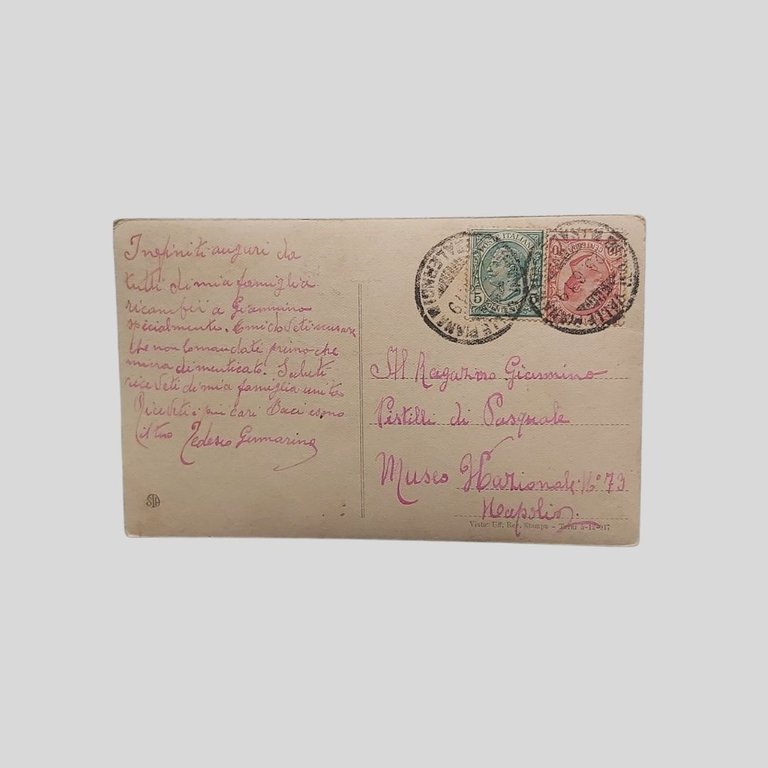 Infiniti auguri da
tutti di mia famiglia
ricambieri a Giannino
specialmente. E mi dovete scusare
che non lo mandate primo che
mi era dimenticato. Saluti
ricevete di mia famiglia unito
Ricevete i più cari Baci e sono
il tuo Tedesco Gennarino
STA
POSTE ITALIANE
5
10
Al Ragazzo Giannino
Pistilli di Pasquale
Museo Nazionale N° 73
Napoli
Visto: Uff. Rev. Stampa - Terni 5-12-917